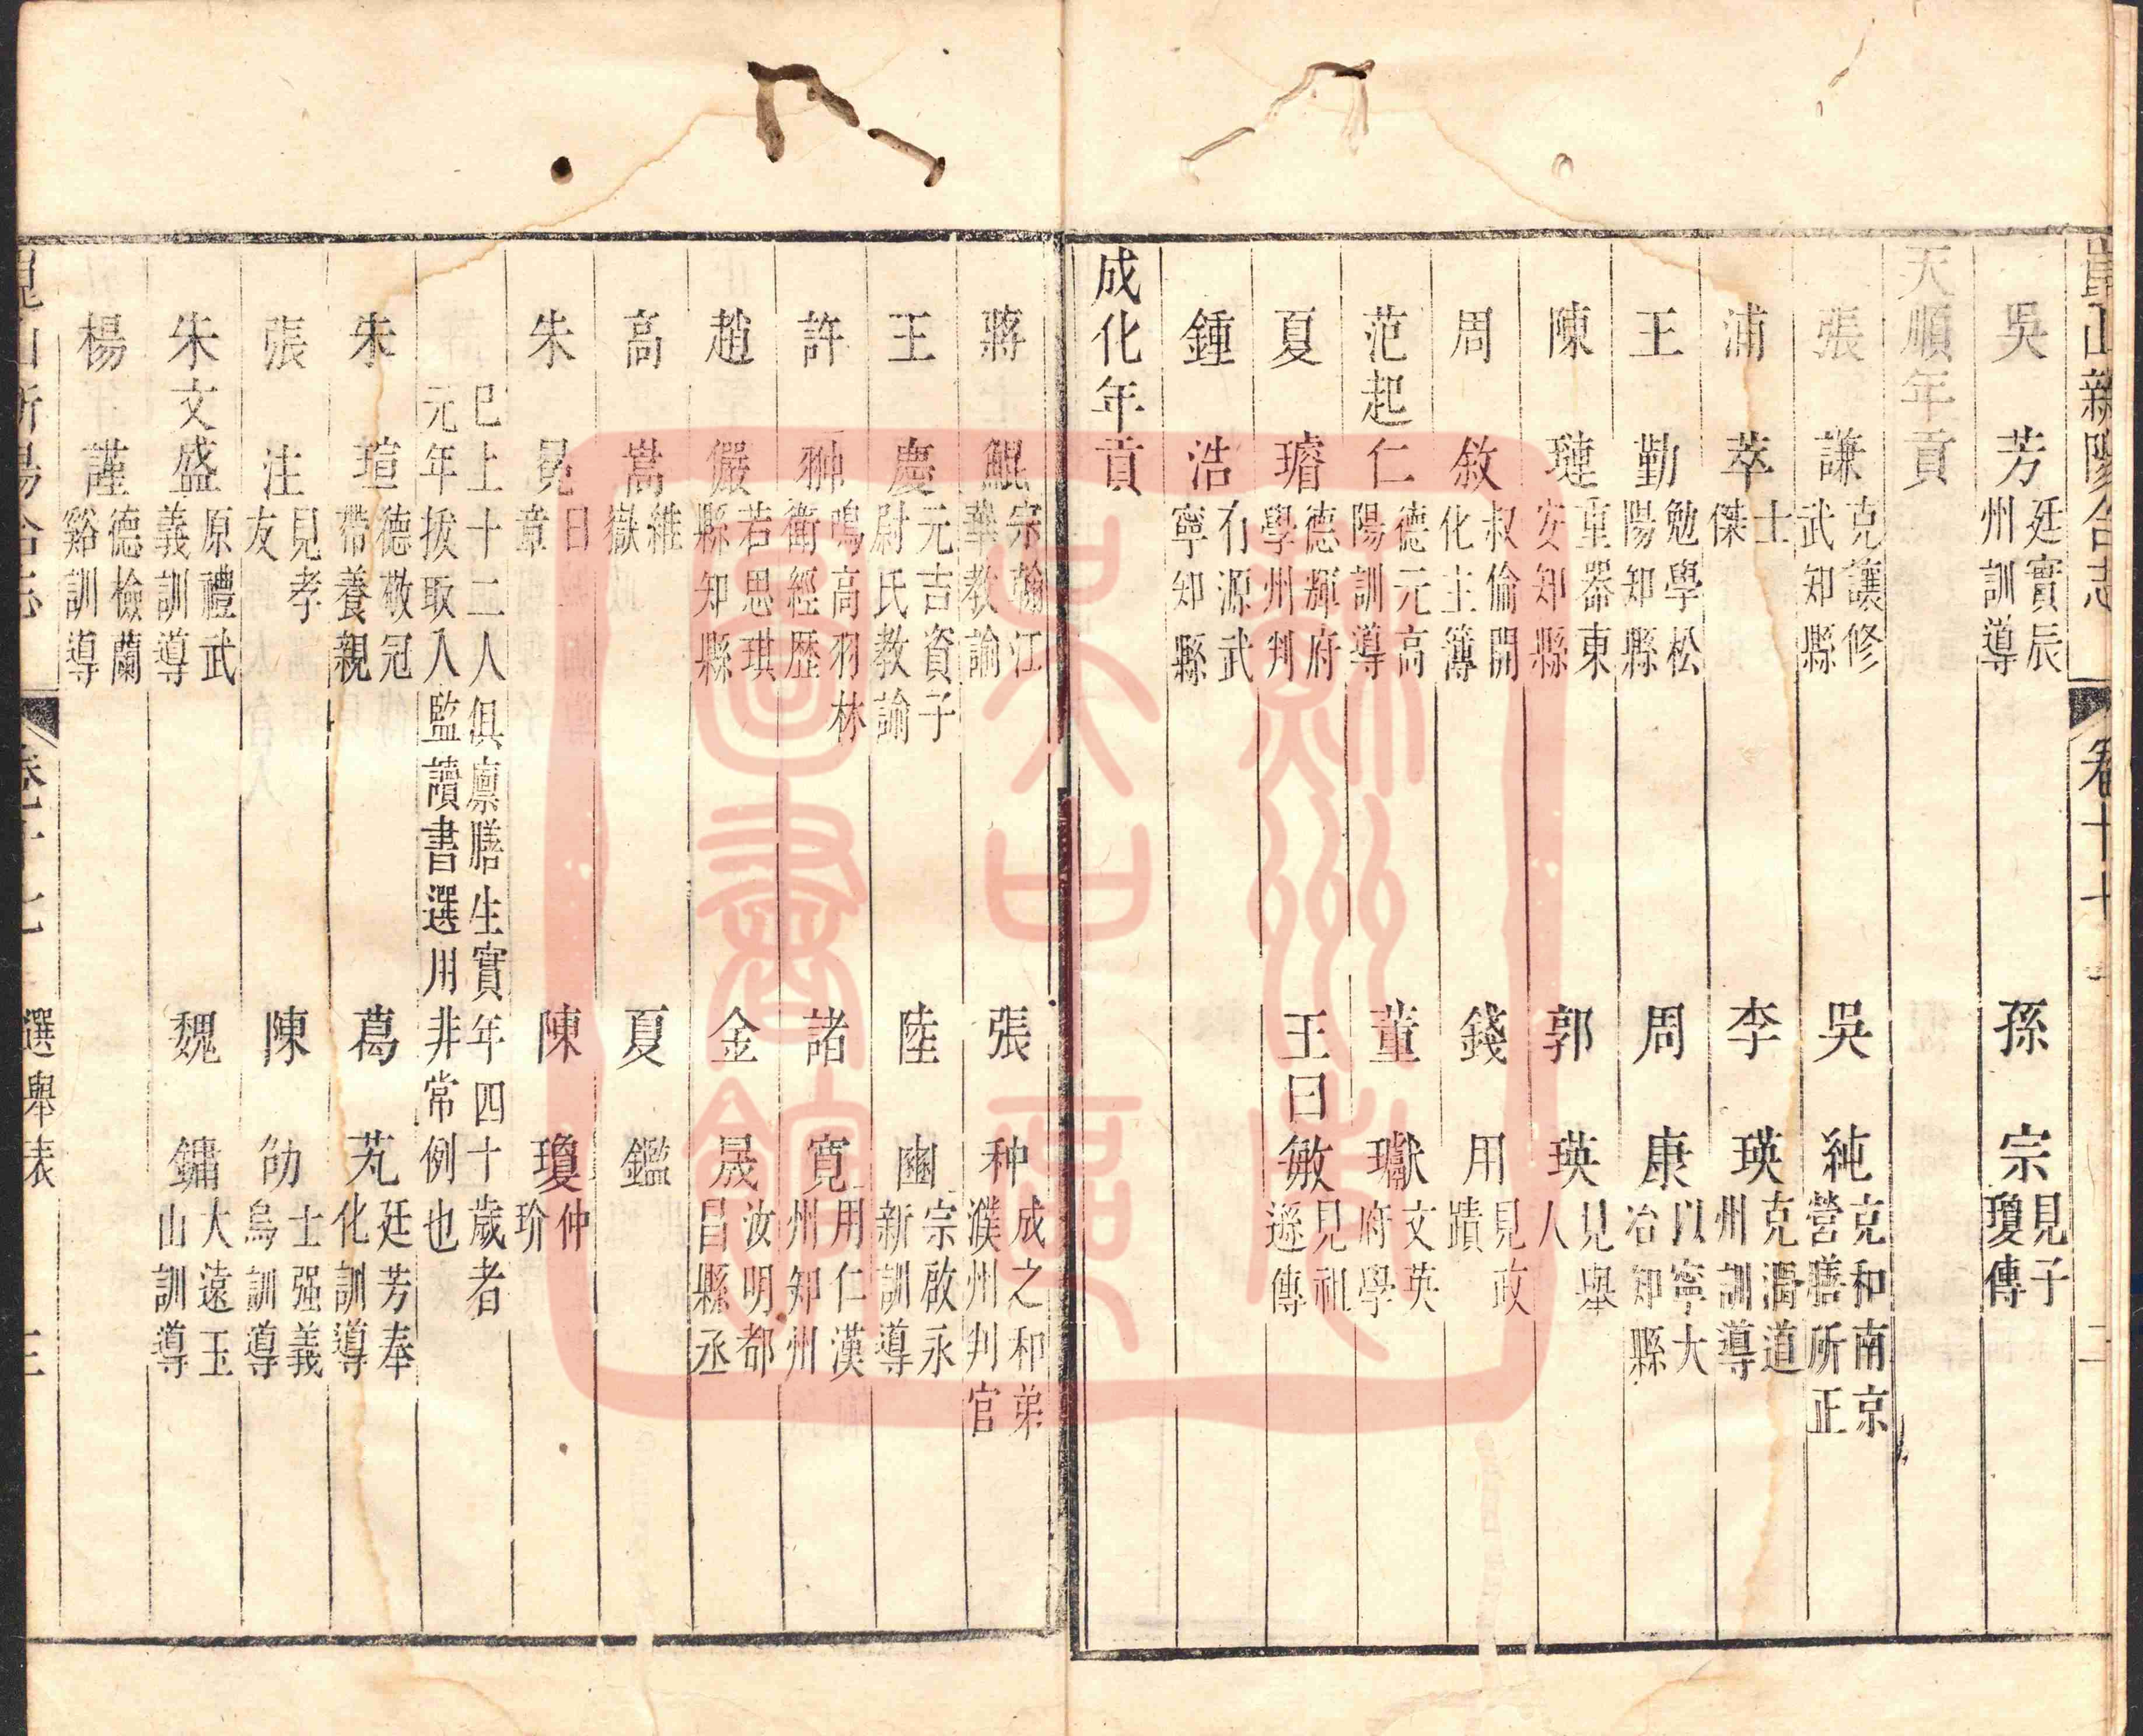 崑山新陽合志 卷十七 二
吳芳 廷實辰州訓導 孫宗 見子瓊傳
天順年貢
張謙 克讓修武知縣 吳純 克和南京營膳所正
浦萃 士傑 李瑛 克濬道州訓導
王勤 勉學松陽知縣 周康 以寧大冶知縣
陳璉 重器東安知縣 郭瑛 見舉人
周敘 叔倫開化主簿 錢用 見政蹟
范起仁 德元高陽訓導 董瓛 文英府學
夏璿 德輝府學州判 王曰敏 見祖遜傳
鍾浩 有源武寧知縣
成化年貢
蔣鯤 宗翰江華教諭 張种 成之和弟濮州判官
王慶 元吉資子尉氏教諭 陸 宗啟永新訓導
許翀 鳴高羽林衛經歷 諸寬 用仁漢州知州
趙儼 若思琪縣知縣 金晟 汝明都昌縣丞
高嵩 維嶽 夏鑑
朱冕 日章 陳瓊 仲玠
已上十二人俱廪膳生實年四十歲者
元年拔取入監讀書選用非常例也
朱瑄 德敬冠帶養親 葛芃 廷芳奉化訓導
張注 見孝友 陳劬 士强義烏訓導
朱文盛 原禮武義訓導 魏鏞 大遠玉山訓導
楊謹 德檢蘭谿訓導
崑山新陽合志 卷十七 選舉表 三
蘇州市吳中區圖書館